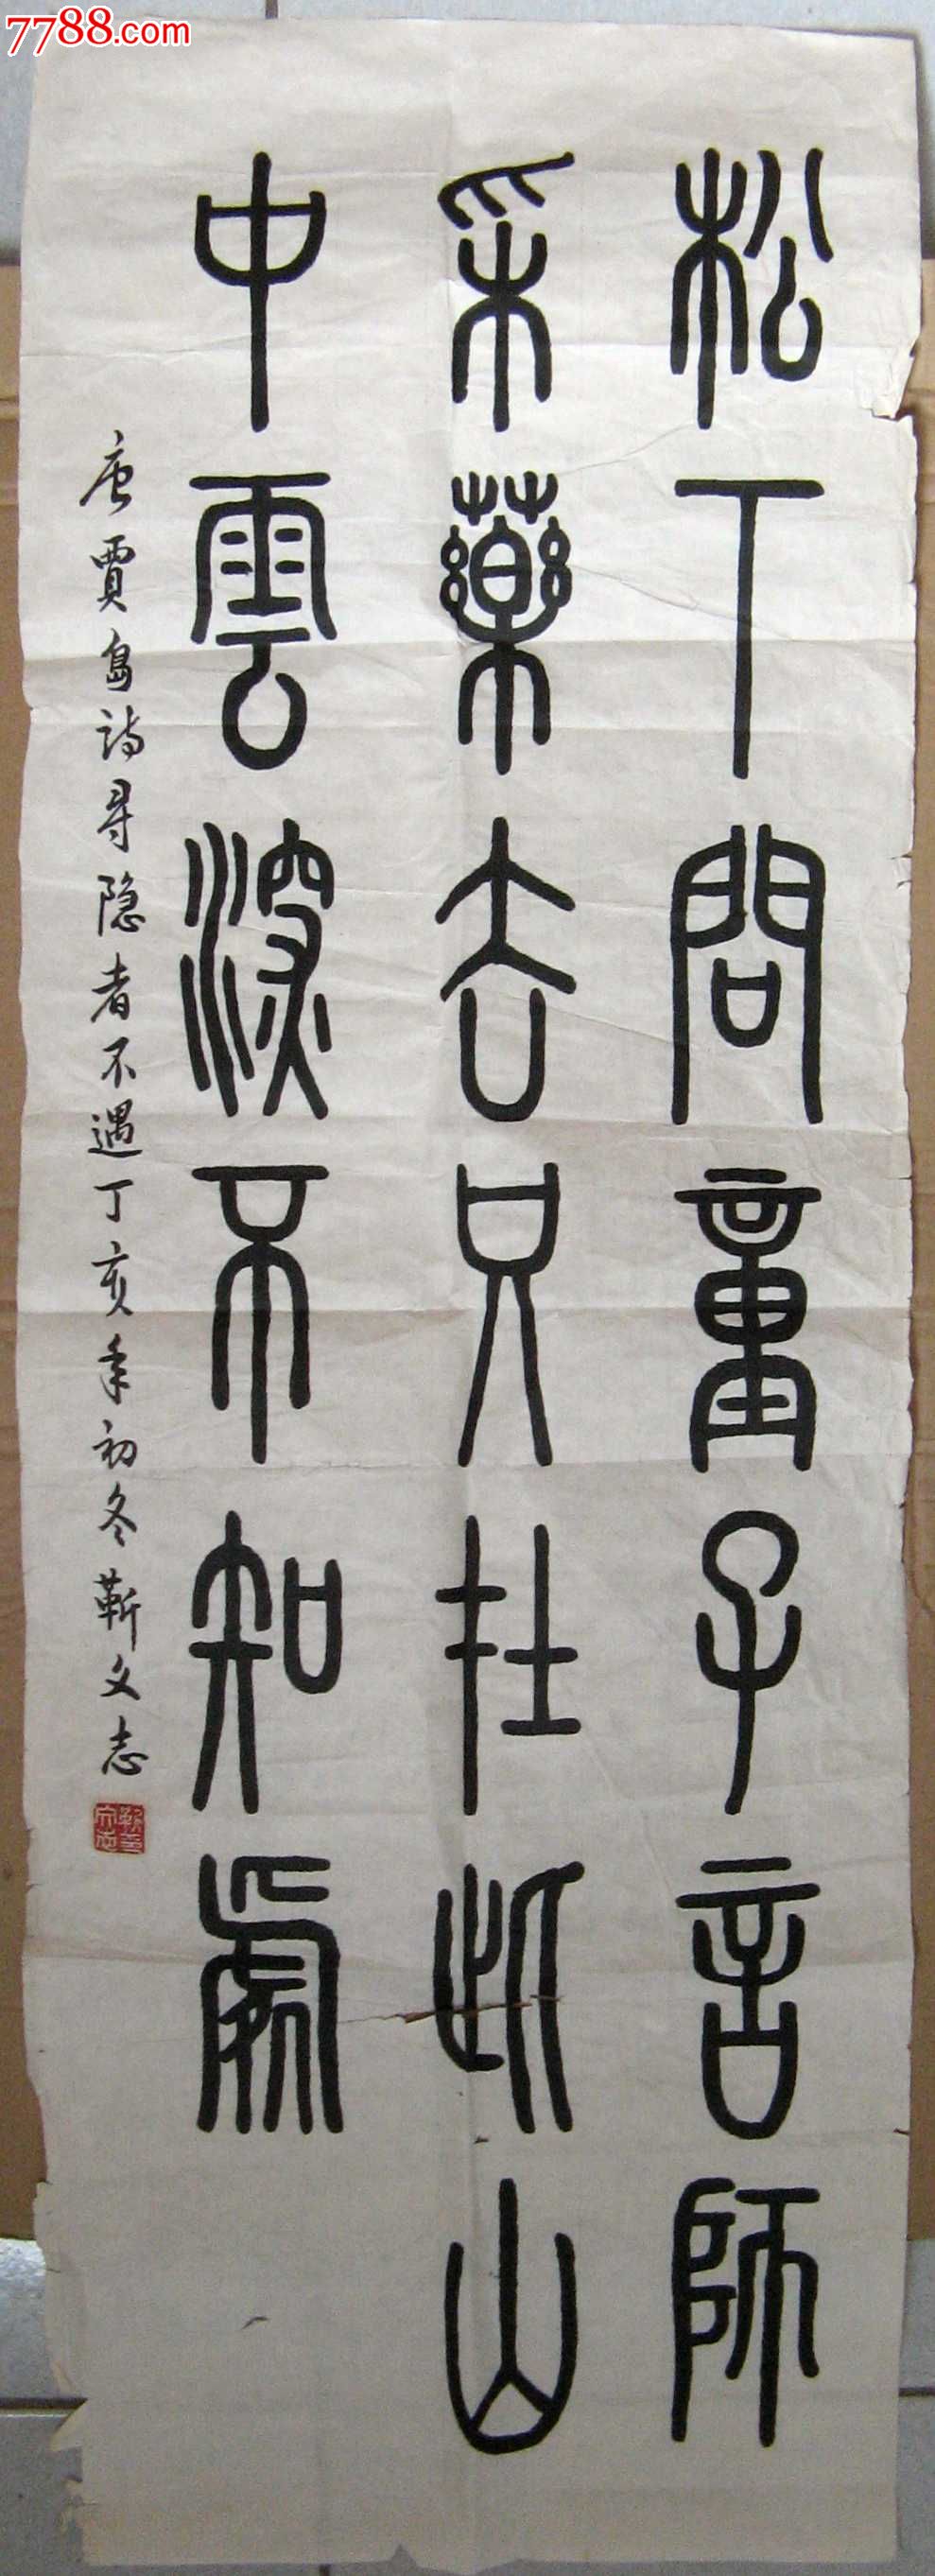 7788.com
松下问童子言師
采藥去只在此山
中雲深不知處
唐賈島诗寻隐者不遇丁亥年初冬靳文志